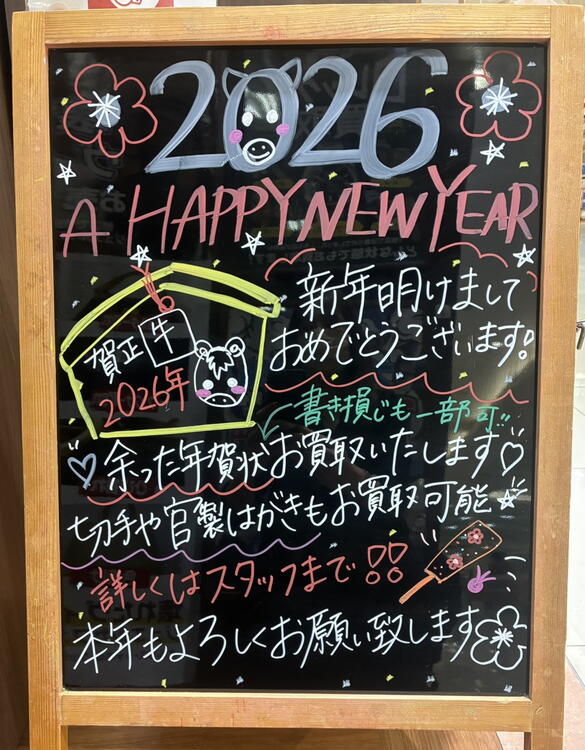 2026
A HAPPY NEW YEAR
新年明けまして
おめでとうございます!
賀正 牛
2026年
書き損じも一部可!!
余った年賀状お買取いたします♡
切手や官製はがきもお買取可能
詳しくはスタッフまで!!
本年もよろしくお願い致します